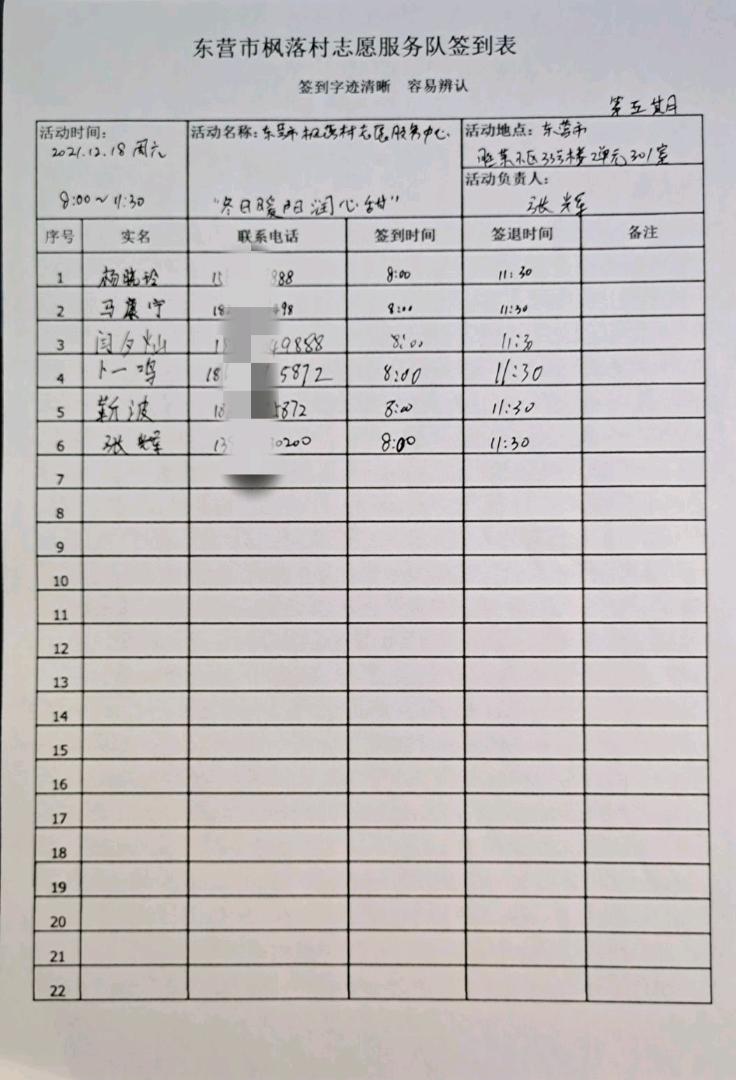 东营市枫落村志愿服务队签到表
签到字迹清晰 容易辨认
活动时间:
2021.12.18 周六
8:00~11:30
活动名称:东营市枫落村志愿服务中心
"冬日暖阳润心甜"
活动地点:东营市
33号楼2单元301室
活动负责人:
张辉
序号 实名 联系电话 签到时间 签退时间 备注
1 杨晓玲 888 8:00 11:30
2 马震宁 498 8:00 11:30
3 闫夕灿 18 49888 8:00 11:30
4 卜一鸣 18 5872 8:00 11:30
5 靳波 18 5872 8:00 11:30
6 张辉 13 0200 8:00 11:30
7
8
9
10
11
12
13
14
15
16
17
18
19
20
21
22